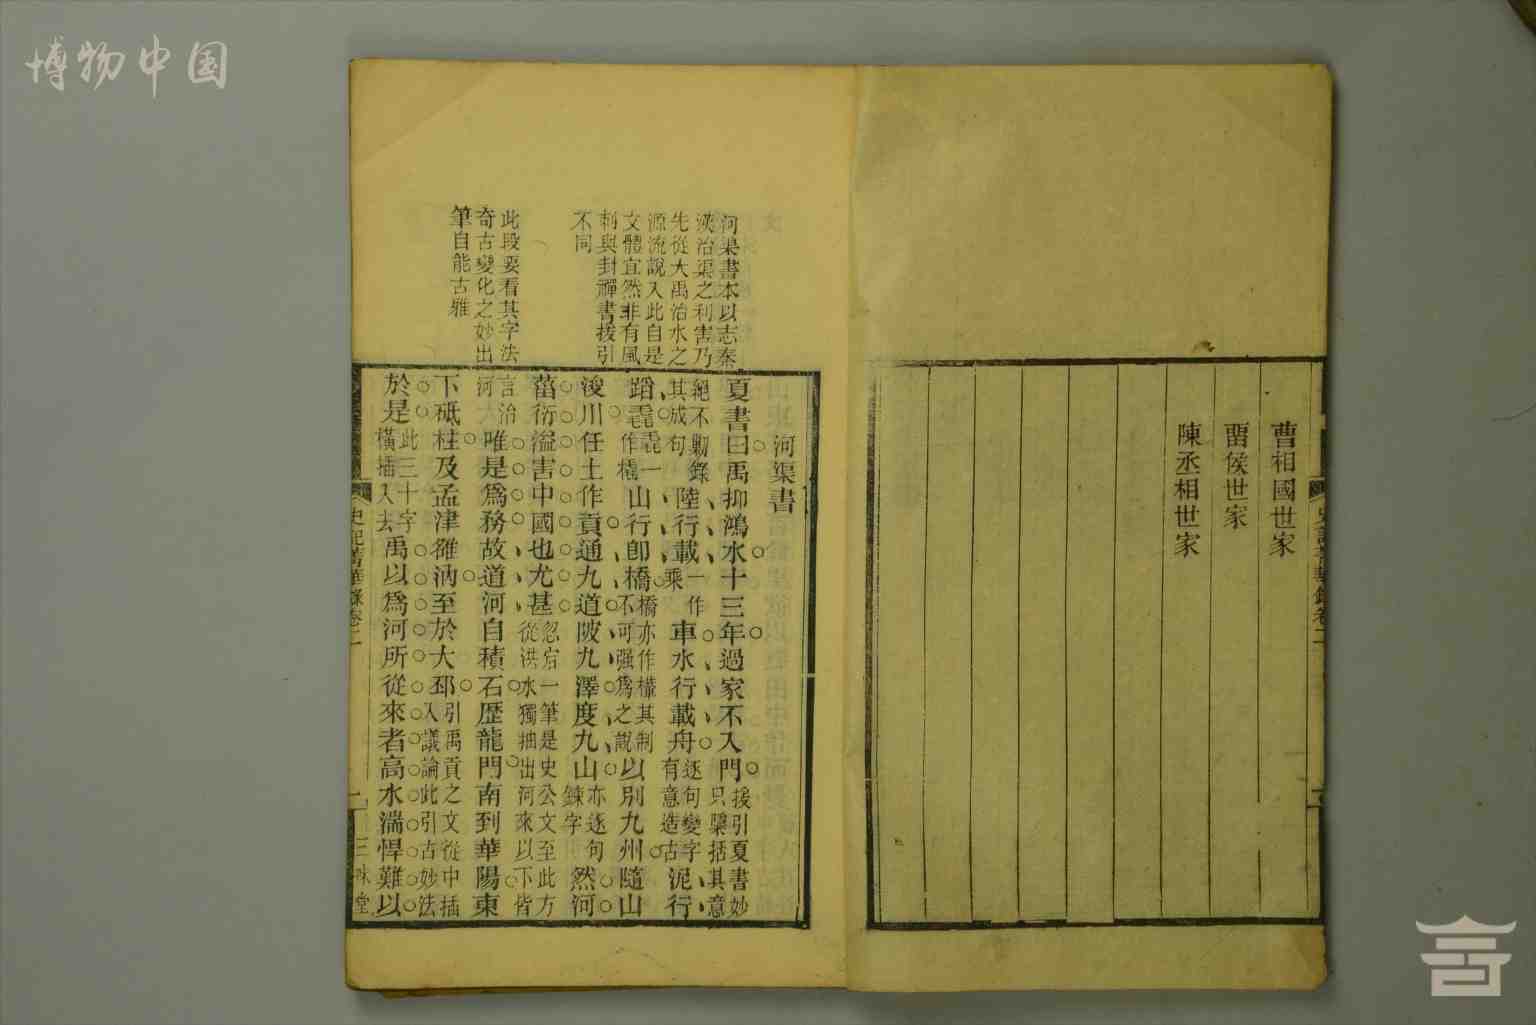 博物中国
曹相國世家
留侯世家
陳丞相世家
河渠書本以志秦
漢治渠之利害乃
先從大禹治水之
源流說入此自是
文體宜然非有風
刺與封禪書援引
不同
此段要看其字法
奇古變化之妙出
筆自能古雅
河渠書
夏書曰禹抑鴻水十三年過家不入門援引夏書妙只櫽括其意
絕不勦錄其成句陸行載一作乘車水行載舟逐句變字有意造古泥行
蹈毳毳一作橇山行卽橋橋亦作檋其制不可强爲之說以別九州隨山
浚川任土作貢通九道陂九澤度九山亦逐句鍊字然河
菑衍溢害中國也尤甚忽宕一筆是史公文至此方從洪水獨抽出河來以下皆
言治河大唯是爲務故道河自積石歷龍門南到華陽東
下砥柱及孟津雒汭至於大邳引禹貢之文從中插入議論此引古妙法
於是此三十字橫插入去禹以爲河所從來者高水湍悍難以
史記菁華錄卷二
三味堂